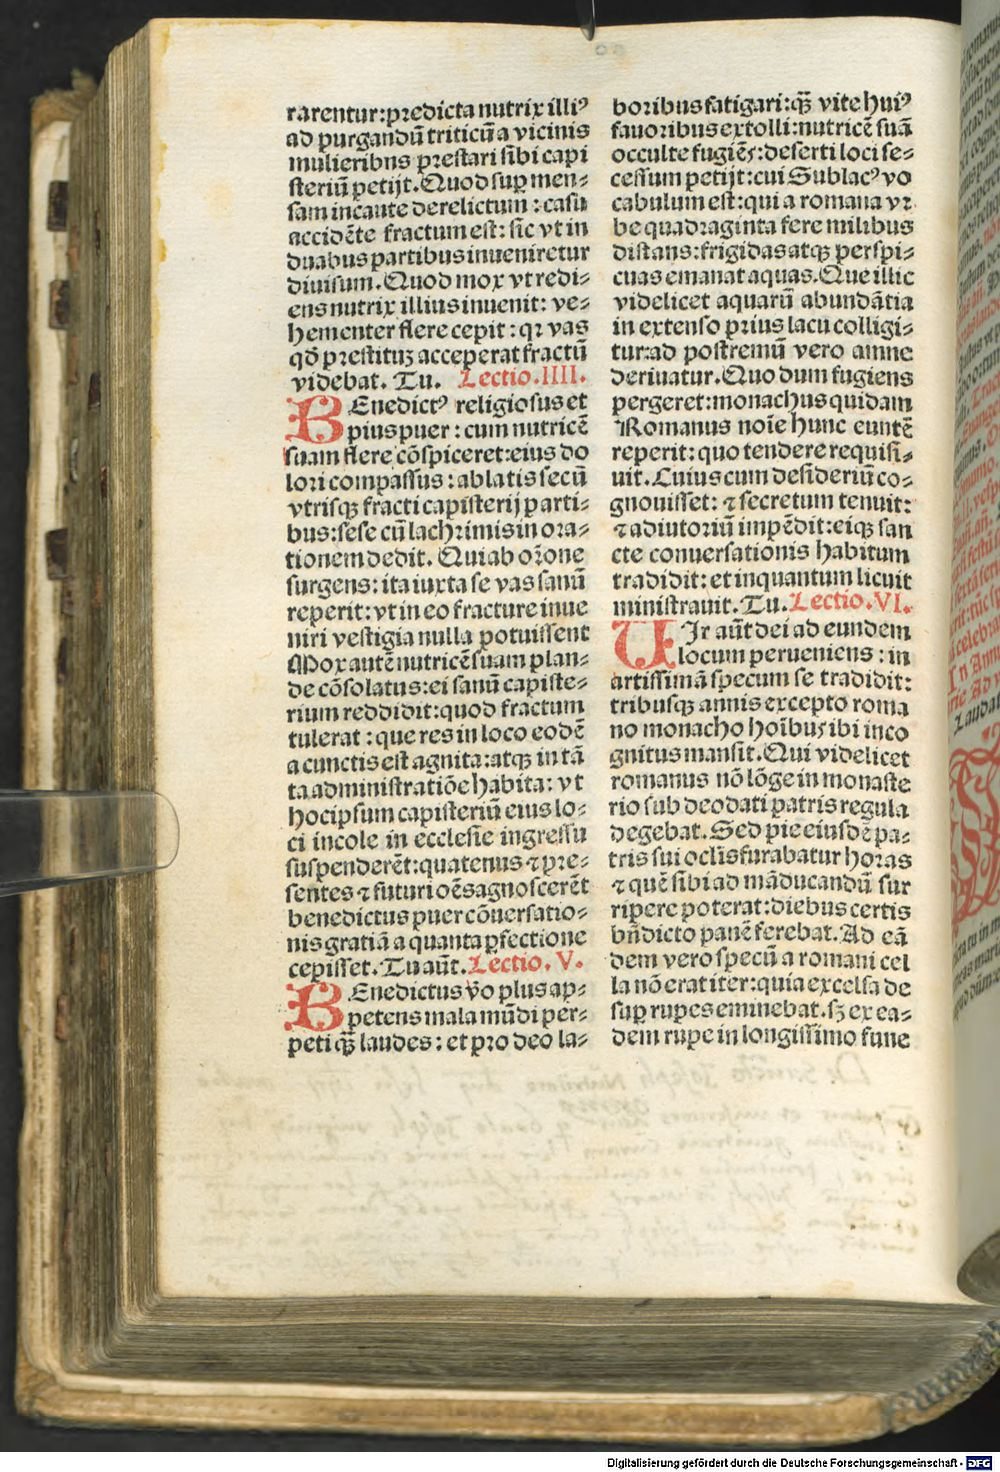 rarentur:predicta nutrix illiꝰ
ad purgandū triticū a vicinis
mulieribus prestari sibi capi
steriū petijt. Quod suꝑ men⸗
sam incaute derelictum : casu
accidēte fractum est: sic vt in
duabus partibus inueniretur
diuisum. Quod mox vt redi⸗
ens nutrix illius inuenit: ve⸗
hementer flere cepit : qꝛ vas
qd̄ prestituꝫ acceperat fractū
videbat. Tu. Lectio.IIII.
BEnedictꝰ religiosus et
pius puer : cum nutricē
suam flere cōspiceret:eius do
lori compassus : ablatis secū
vtrisqꝫ fracti capisterij parti⸗
bus:sese cū lachrimis in ora⸗
tionem dedit. Qui ab oꝛ̄one
surgens: ita iuxta se vas sanū
reperit: vt in eo fracture inue
niri vestigia nulla potuissent
Mox autē nutricē suam plan⸗
de cōsolatus:ei sanū capiste⸗
rium reddidit:quod fractum
tulerat : que res in loco eodē
a cunctis est agnita: atqꝫ in tā
ta administratiōe habita: vt
hoc ipsum capisteriū eius lo⸗
ci incole in ecclesie ingressu
suspenderēt:quatenus ⁊ pre⸗
sentes ⁊ futuri oēs agnoscerēt
benedictus puer cōuersatio⸗
nis gratiā a quanta ꝑfectione
cepisset. Tu aūt. Lectio. V.
BEnedictus v̄o plus ap⸗
petens mala mūdi per⸗
peti qꝫ̄ laudes : et pro deo la⸗
boribus fatigari: qꝫ̄ vite huiꝰ
fauoribus extolli: nutricē suā
occulte fugiēs: deserti loci se⸗
cessum petijt: cui Sublacꝰ vo
cabulum est: qui a romana vꝛ
be quadraginta fere milibus
distans: frigidas atqꝫ perspi⸗
cuas emanat aquas. Que illic
videlicet aquarū abundātia
in extenso prius lacu colligi⸗
tur:ad postremū vero amne
deriuatur. Quo dum fugiens
pergeret: monachus quidam
Romanus noīe hunc euntē
reperit: quo tendere requisi⸗
uit. Cuius cum desideriū co⸗
gnouisset: ⁊ secretum tenuit:
⁊ adiutoriū impēdit: eiqꝫ san
cte conuersationis habitum
tradidit: et inquantum licuit
ministrauit. Tu. Lectio.VI.
UIr aūt dei ad eundem
locum perueniens : in
artissimā specum se tradidit:
tribusqꝫ annis excepto roma
no monacho hoībus ibi inco
gnitus mansit. Qui videlicet
romanus nō lōge in monaste
rio sub deodati patris regula
degebat. Sed pie eiusdē pa⸗
tris sui oclis̄ furabatur horas
⁊ quē sibi ad māducandū sur
ripere poterat: diebus certis
bn̄dicto panē ferebat. Ad eā
dem vero specū a romani cel
la nō erat iter: quia excelsa de
suꝑ rupes eminebat. sꝫ ex ea⸗
dem rupe in longissimo fune
Digitalisierung gefördert durch die Deutsche Forschungsgemeinschaft - DFG